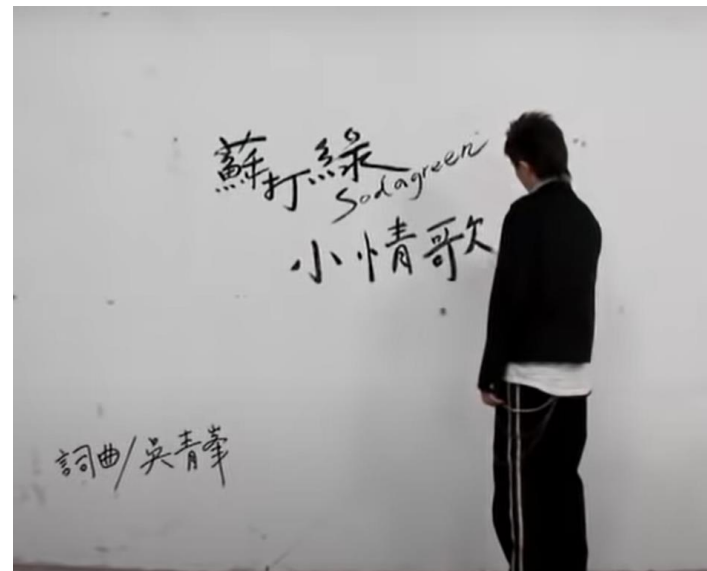 蘇打綠
Sodagreen
小情歌
詞曲/吳青峯